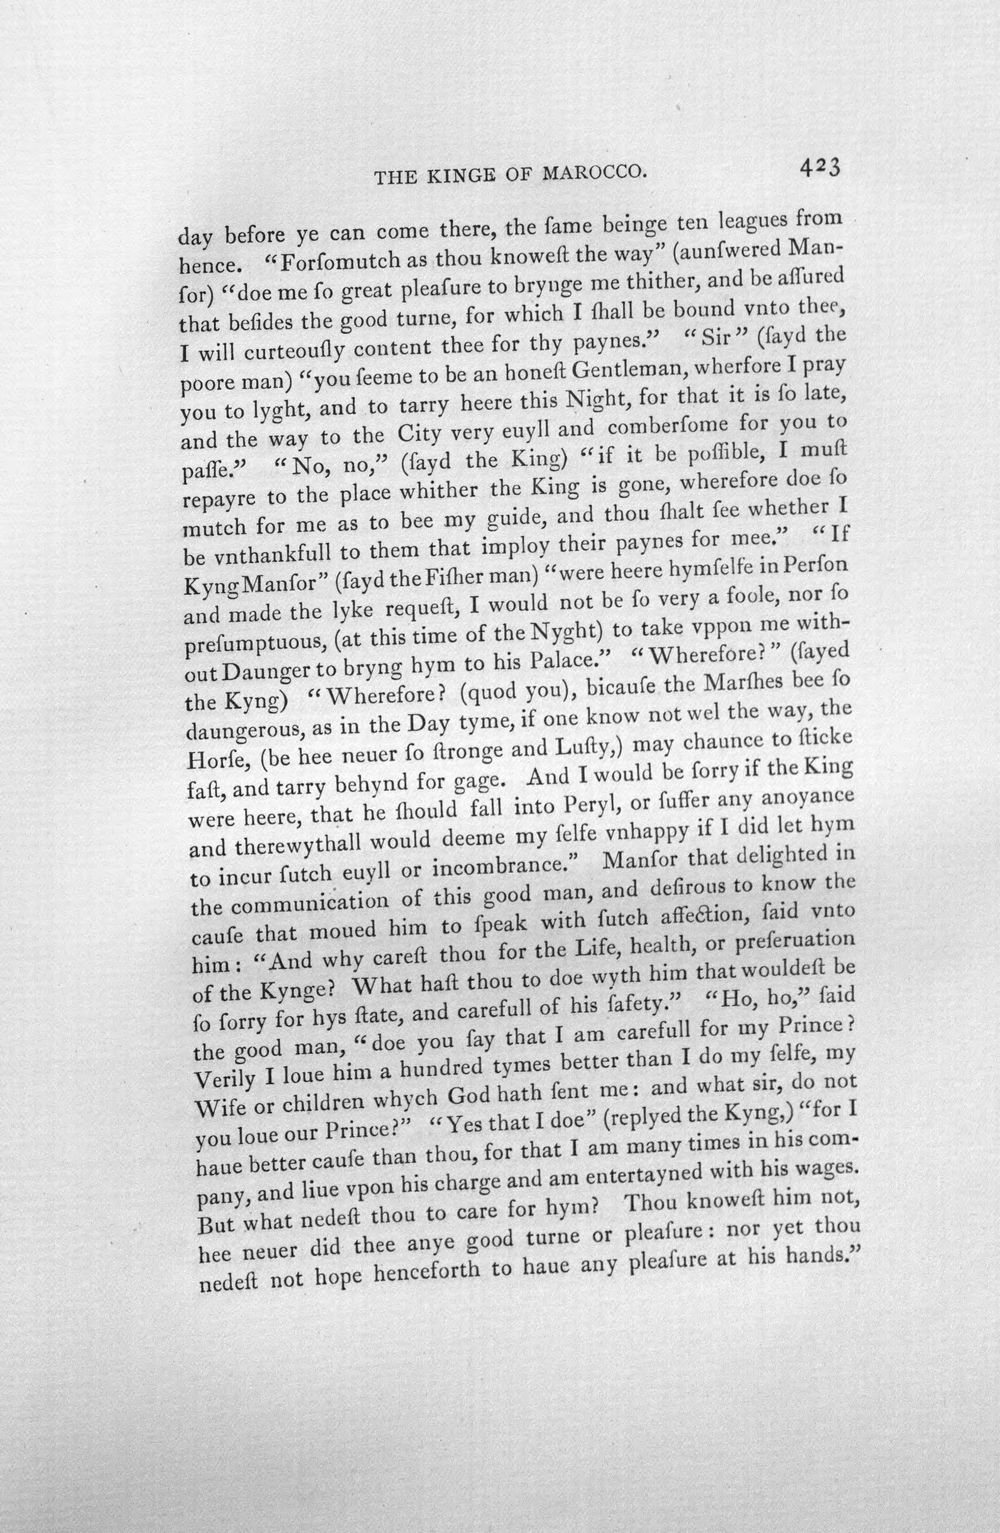 THE KINGE OF MAROCCO. 423
day before ye can come there, the ſame beinge ten leagues from
hence. “Forſomutch as thou knoweſt the way” (aunſwered Man-
ſor) “doe me ſo great pleaſure to brynge me thither, and be aſſured
that beſides the good turne, for which I ſhall be bound vnto thee,
I will curteouſly content thee for thy paynes.” “Sir” (ſayd the
poore man) “you ſeeme to be an honeſt Gentleman, wherfore I pray
you to lyght, and to tarry heere this Night, for that it is ſo late,
and the way to the City very euyll and comberſome for you to
paſſe.” “No, no,” (ſayd the King) “if it be poſſible, I muſt
repayre to the place whither the King is gone, wherefore doe ſo
mutch for me as to bee my guide, and thou ſhalt ſee whether I
be vnthankfull to them that imploy their paynes for mee.” “If
Kyng Manſor” (ſayd the Fiſher man) “were heere hymſelfe in Perſon
and made the lyke requeſt, I would not be ſo very a foole, nor ſo
preſumptuous, (at this time of the Nyght) to take vppon me with-
out Daunger to bryng hym to his Palace.” “Wherefore?” (ſayed
the Kyng) “Wherefore? (quod you), bicauſe the Marſhes bee ſo
daungerous, as in the Day tyme, if one know not wel the way, the
Horſe, (be hee neuer ſo ſtronge and Luſty,) may chaunce to ſticke
faſt, and tarry behynd for gage. And I would be ſorry if the King
were heere, that he ſhould fall into Peryl, or ſuffer any anoyance
and therewythall would deeme my ſelfe vnhappy if I did let hym
to incur ſutch euyll or incombrance.” Manſor that delighted in
the communication of this good man, and deſirous to know the
cauſe that moued him to ſpeak with ſutch affection, ſaid vnto
him: “And why careſt thou for the Life, health, or preſeruation
of the Kynge? What haſt thou to doe wyth him that wouldeſt be
ſo ſorry for hys ſtate, and carefull of his ſafety.” “Ho, ho,” ſaid
the good man, “doe you ſay that I am carefull for my Prince?
Verily I loue him a hundred tymes better than I do my ſelfe, my
Wife or children whych God hath ſent me: and what sir, do not
you loue our Prince?” “Yes that I doe” (replyed the Kyng,) “for I
haue better cauſe than thou, for that I am many times in his com-
pany, and liue vpon his charge and am entertayned with his wages.
But what nedeſt thou to care for hym? Thou knoweſt him not,
hee neuer did thee anye good turne or pleaſure: nor yet thou
nedeſt not hope henceforth to haue any pleaſure at his hands.”